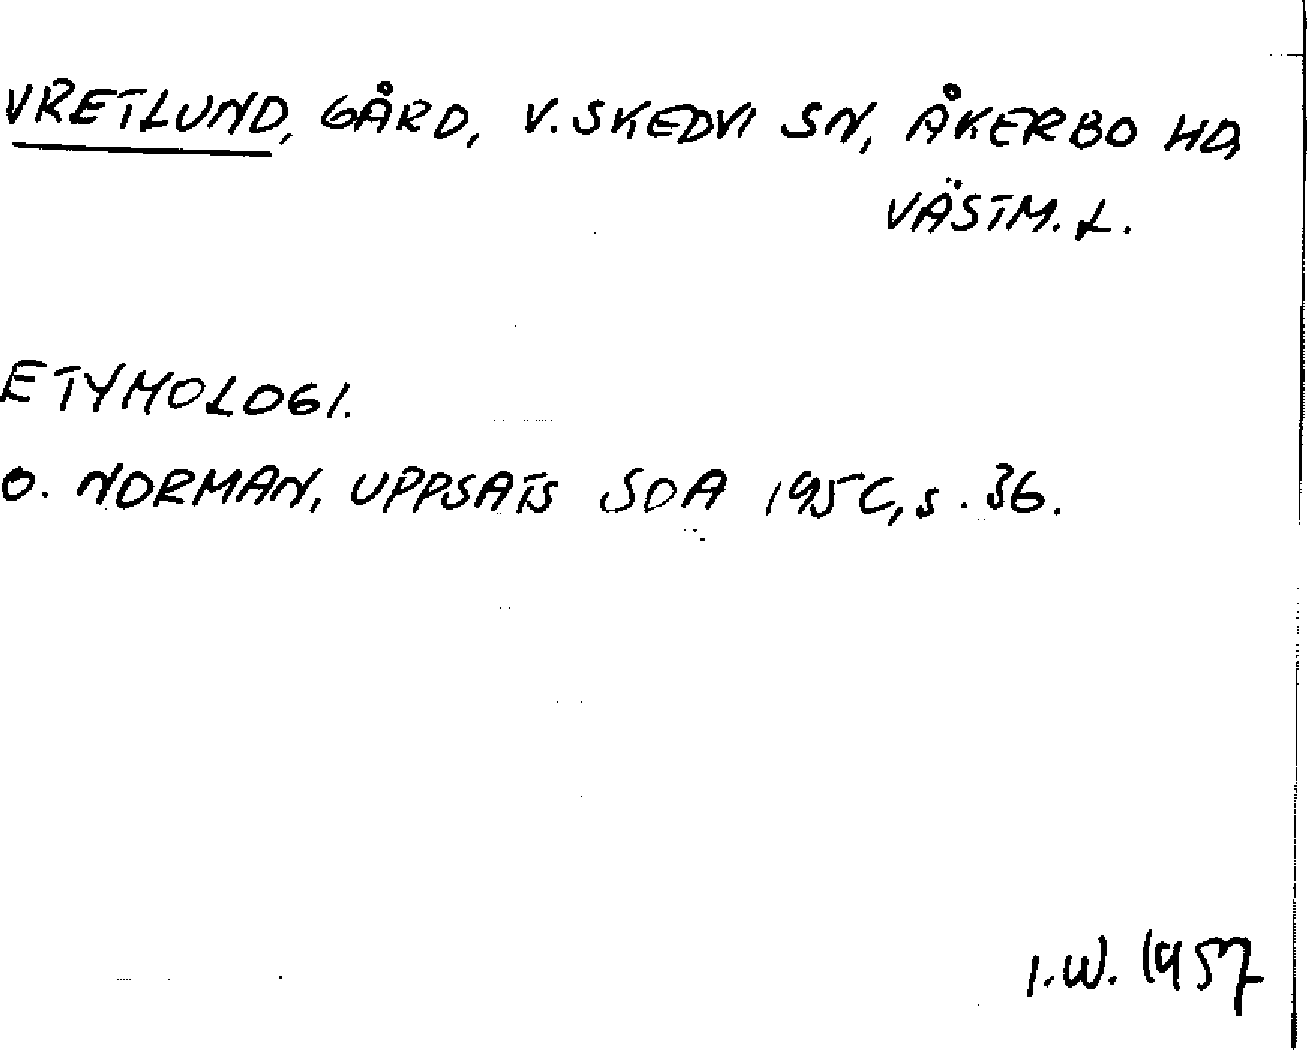 VRETLUND, GÅRD, V. SKEDVI SN, ÅKERBO HD,
VÄSTM. L.
ETYMOLOGI.
O. NORMAN, UPPSATS SOA 1950, s. 36.
I.W. 1957